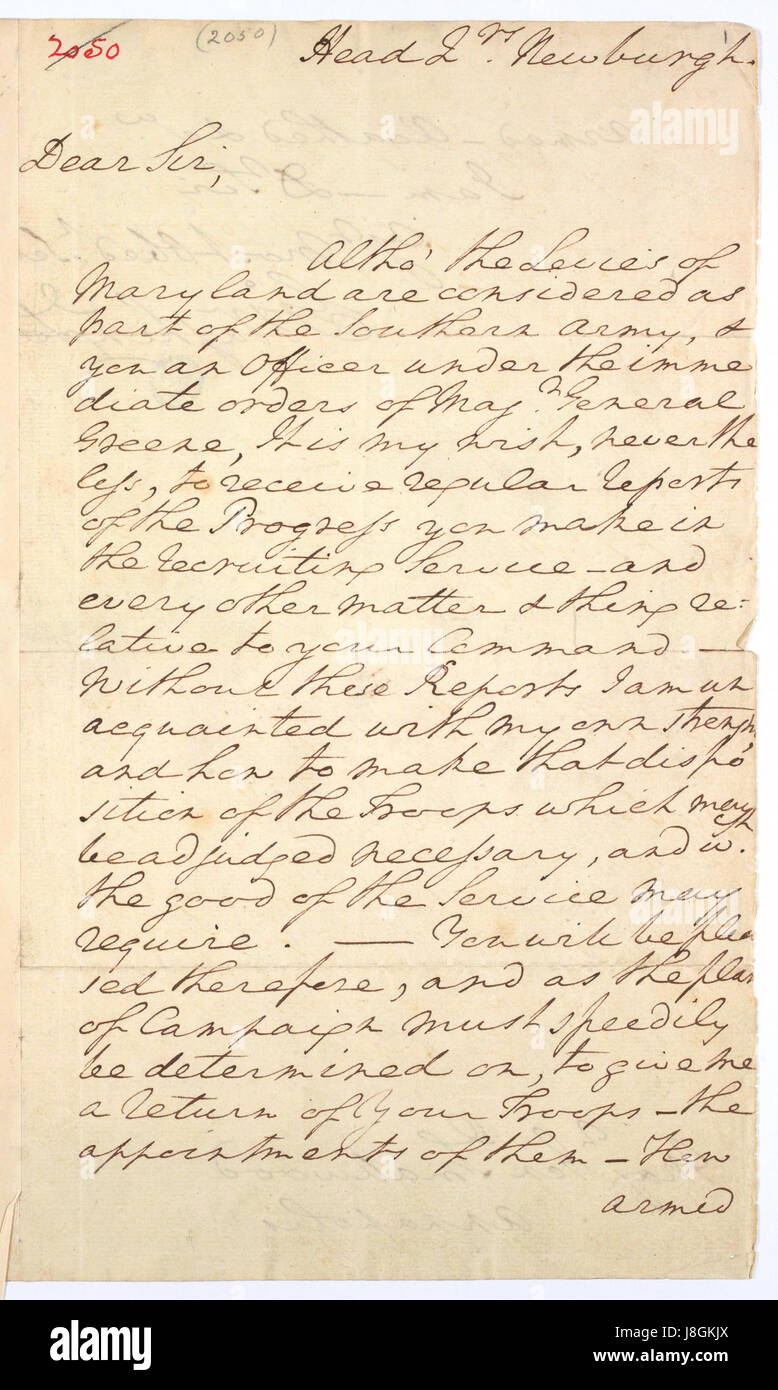 2050 (2050) 1
Head Qrs. Newburgh.
Dear Sir,
Altho' the Levies of
Maryland are considered as
part of the Southern Army, &
you an Officer under the imme
diate orders of Majr. General
Greene, It is my wish, never the
less, to receive regular reports
of the Progress you make in
the recruiting Service – and
every other matter & thing re=
lative to your Command. —
Without these Reports I am un
acquainted with my own strength,
and how to make that dispo
sition of the Troops which may
be adjudged necessary, and wch.
the good of the Service may
require. — You will be plea
sed therefore, and as the plan
of Campaign must speedily
be determined on, to give me
a return of Your Troops – the
appointments of them – How
armed
alamy
alamy
alamy
alamy
Image ID: J8GKJX
www.alamy.com